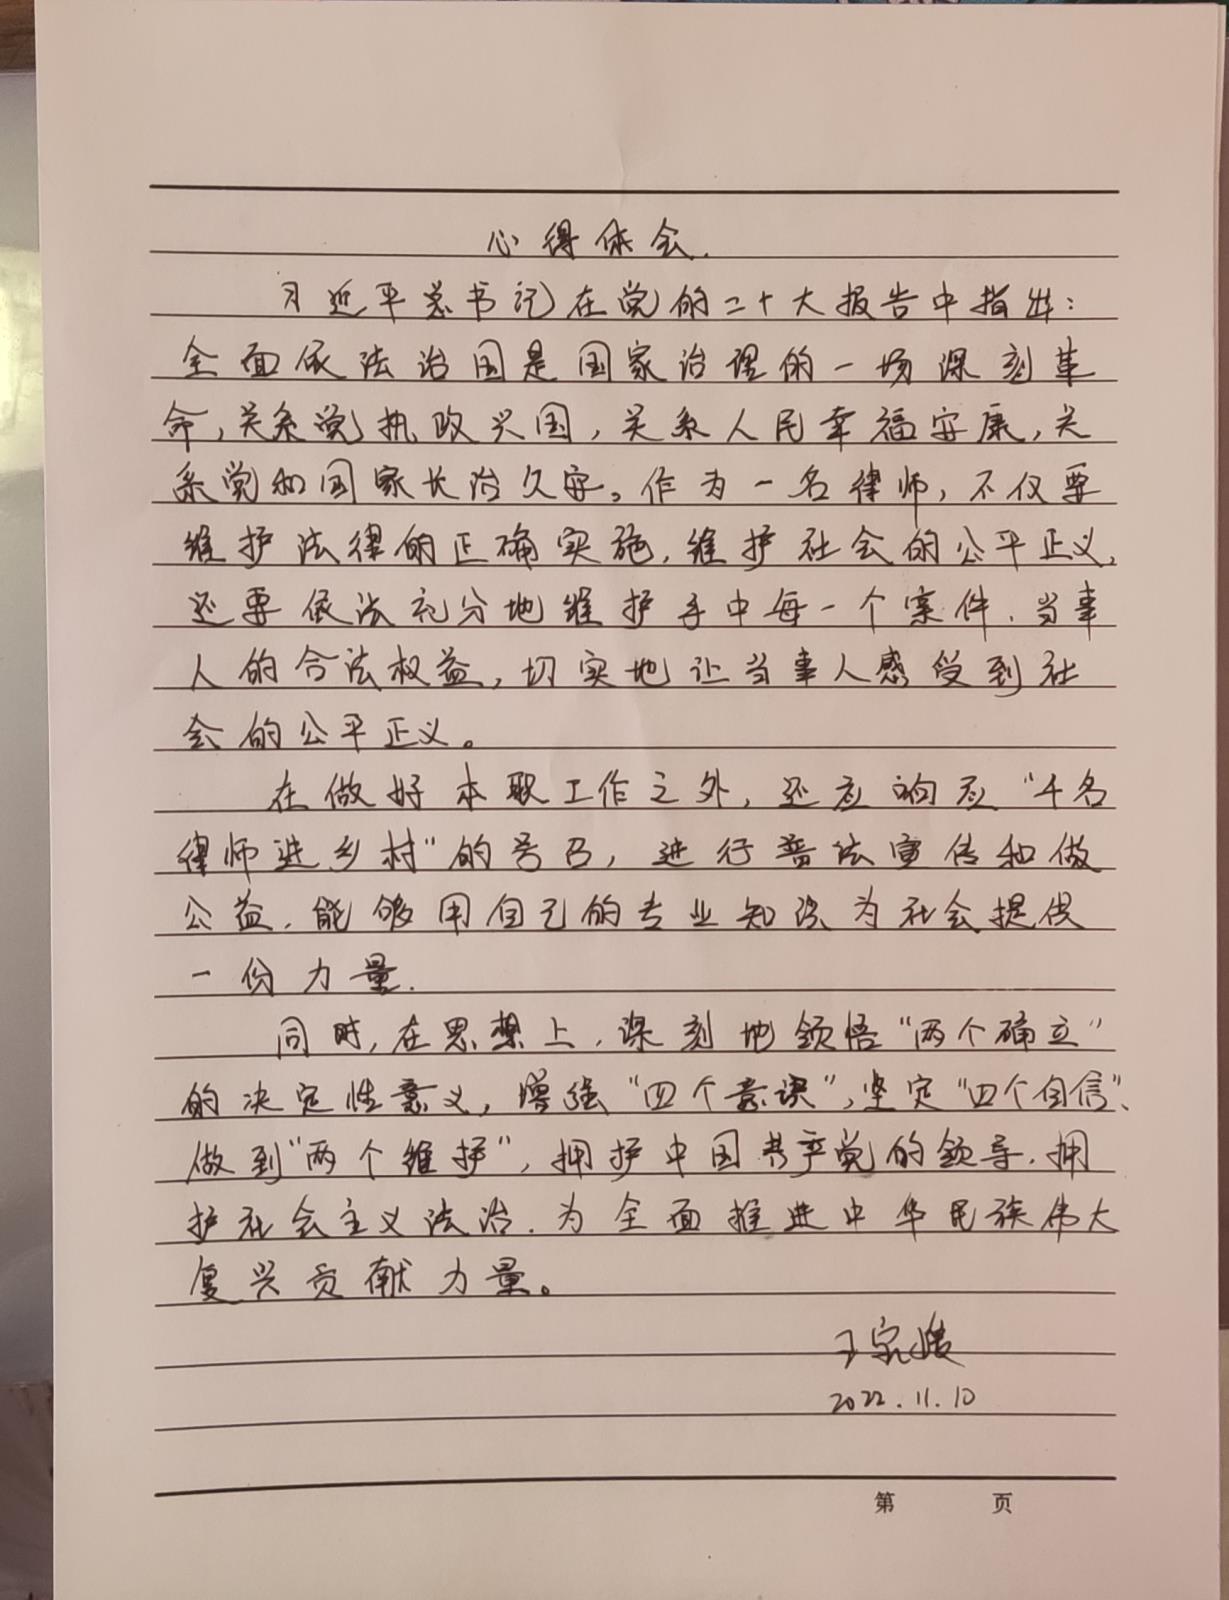 心得体会.
习近平总书记在党的二十大报告中指出：
全面依法治国是国家治理的一场深刻革
命，关系党执政兴国，关系人民幸福安康，关
系党和国家长治久安。作为一名律师，不仅要
维护法律的正确实施，维护社会的公平正义，
还要依法充分地维护手中每一个案件、当事
人的合法权益，切实地让当事人感受到社
会的公平正义。
在做好本职工作之外，还应响应“千名
律师进乡村”的号召，进行普法宣传和做
公益，能够用自己的专业知识为社会提供
一份力量.
同时，在思想上，深刻地领悟“两个确立”
的决定性意义，增强“四个意识”，坚定“四个自信”、
做到“两个维护”，拥护中国共产党的领导，拥
护社会主义法治，为全面推进中华民族伟大
复兴贡献力量。
王家
2022.11.10
第 页